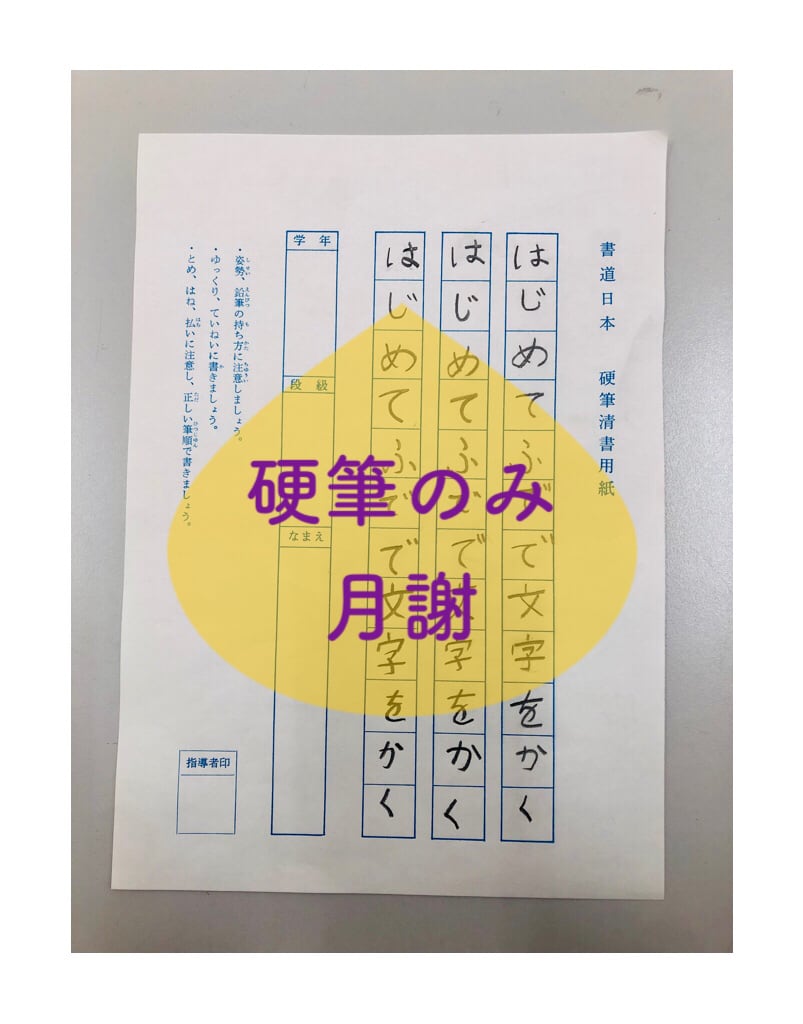 硬筆のみ
月謝
書道日本　硬筆清書用紙
はじめてふでで文字をかく
はじめてふでで文字をかく
はじめてふでで文字をかく
学年
段級
なまえ
・姿勢、鉛筆の持ち方に注意しましょう。
・ゆっくり、ていねいに書きましょう。
・とめ、はね、払いに注意し、正しい筆順で書きましょう。
指導者印